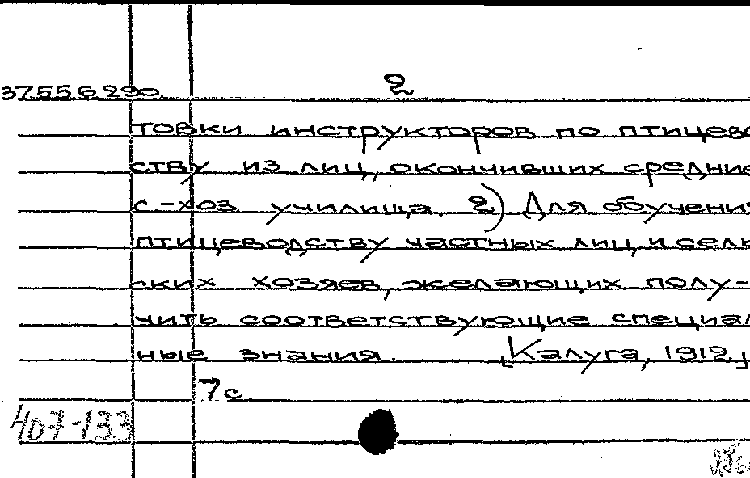 37.556.290. 2
товки инструкторов по птицево
ству из лиц, окончивших средние
с-хоз училища. 2) Для обучения
птицеводству частных лиц и сель
ских хозяев, желающих полу-
чить соответствующие специал
ные знания. [Калуга, 1912]
7 с.
407-133